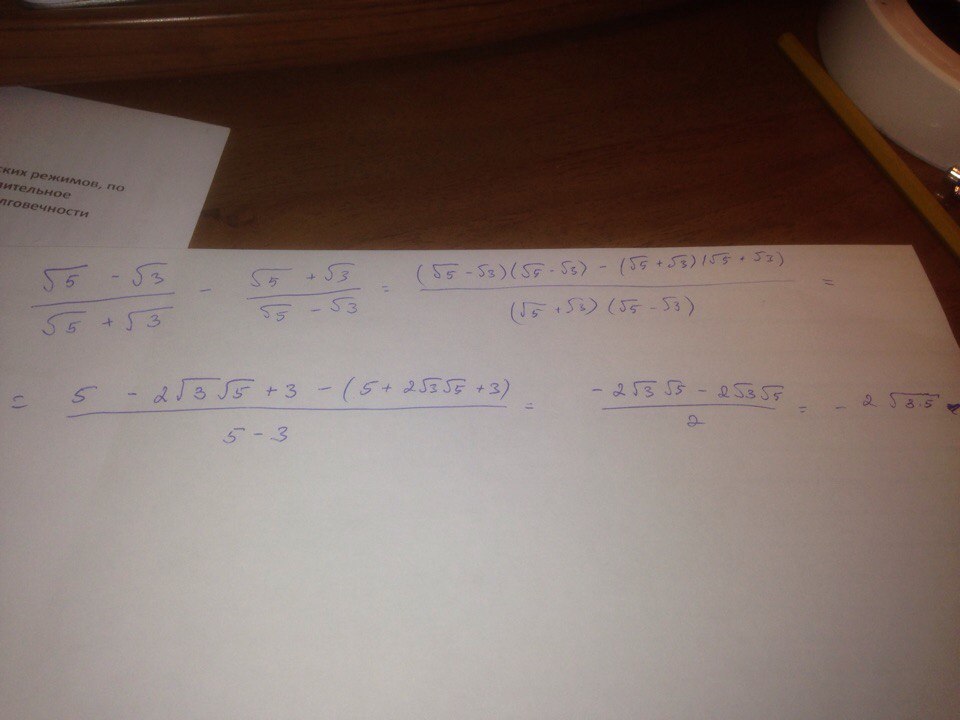 ских режимов, по
ительное
лговечности
(√5 - √3)/(√5 + √3) - (√5 + √3)/(√5 - √3) = ((√5 - √3)(√5 - √3) - (√5 + √3)(√5 + √3))/((√5 + √3)(√5 - √3)) =
= (5 - 2√3√5 + 3 - (5 + 2√3√5 + 3))/(5 - 3) = (-2√3√5 - 2√3√5)/2 = - 2√(3·5)